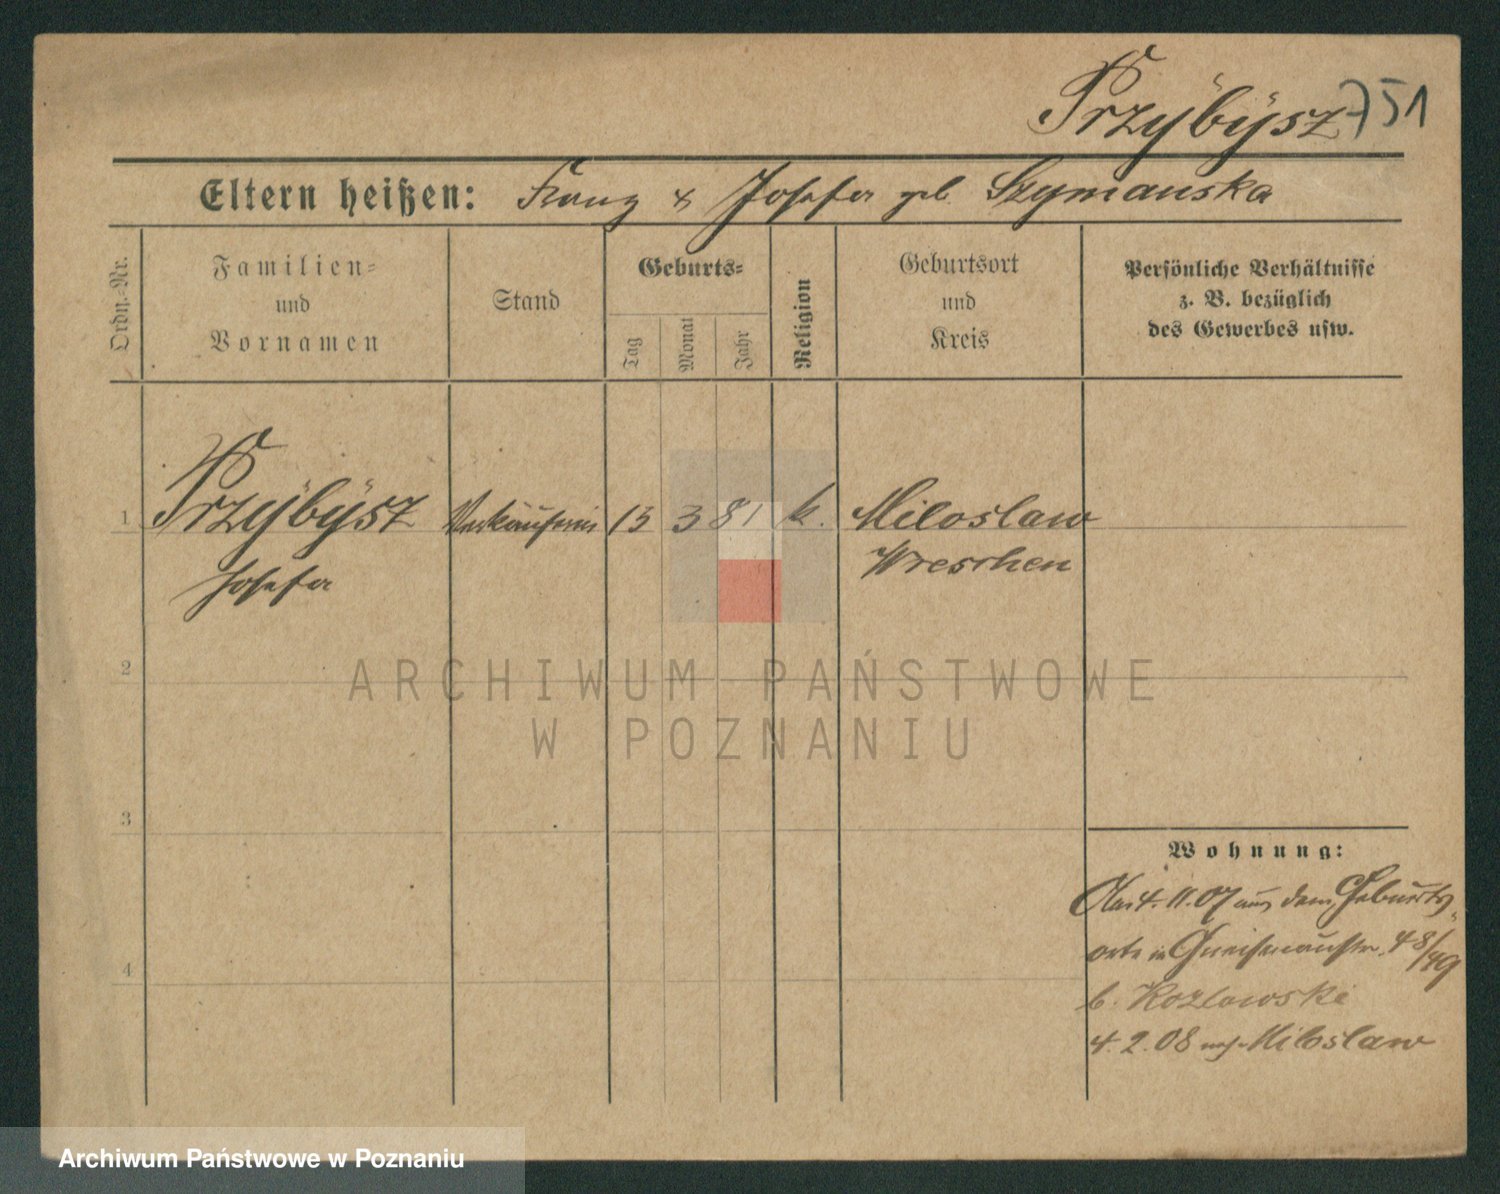 Przybÿsz 751
Eltern heißen: Franz & Josefa geb. Szymanska
Ordn.-Nr.
Familien-
und
Vornamen
Stand
Geburts-
Tag
Monat
Jahr
Religion
Geburtsort
und
Kreis
Persönliche Verhältnisse
z. B. bezüglich
des Gewerbes usw.
1 Przybÿsz Verkäuferin 13 3 81 k. Miloslaw
Josefa Wreschen
2
ARCHIWUM PAŃSTWOWE
W POZNANIU
3
Wohnung:
4. 11. 07 aus dem Geburts-
orte in Gneisenaustr. 48/49
4
b. Kozlowski
4. 2. 08 nach Miloslaw
Archiwum Państwowe w Poznaniu